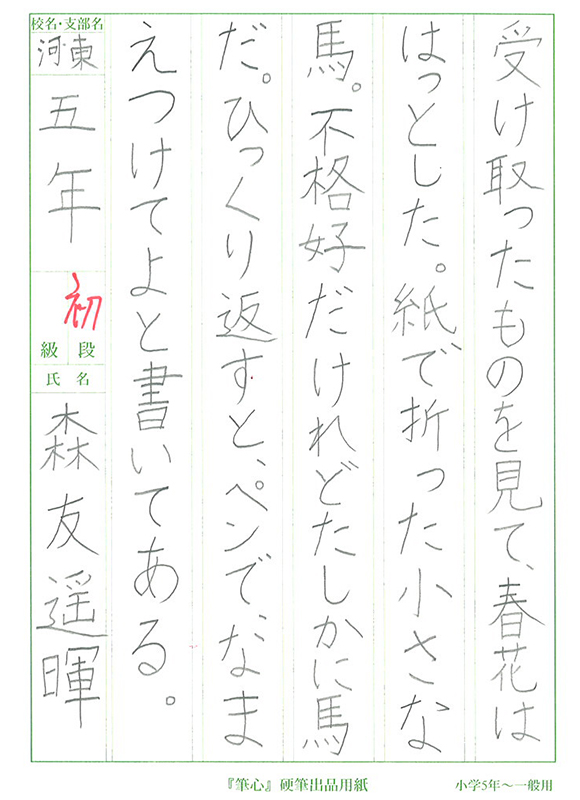 受け取ったものを見て、春花は
はっとした。紙で折った小さな
馬。不格好だけれどたしかに馬
だ。ひっくり返すと、ペンで、なま
えつけてよと書いてある。
校名・支部名
河東
五年
初
級段
氏名
森友遥暉
『筆心』硬筆出品用紙
小学5年〜一般用